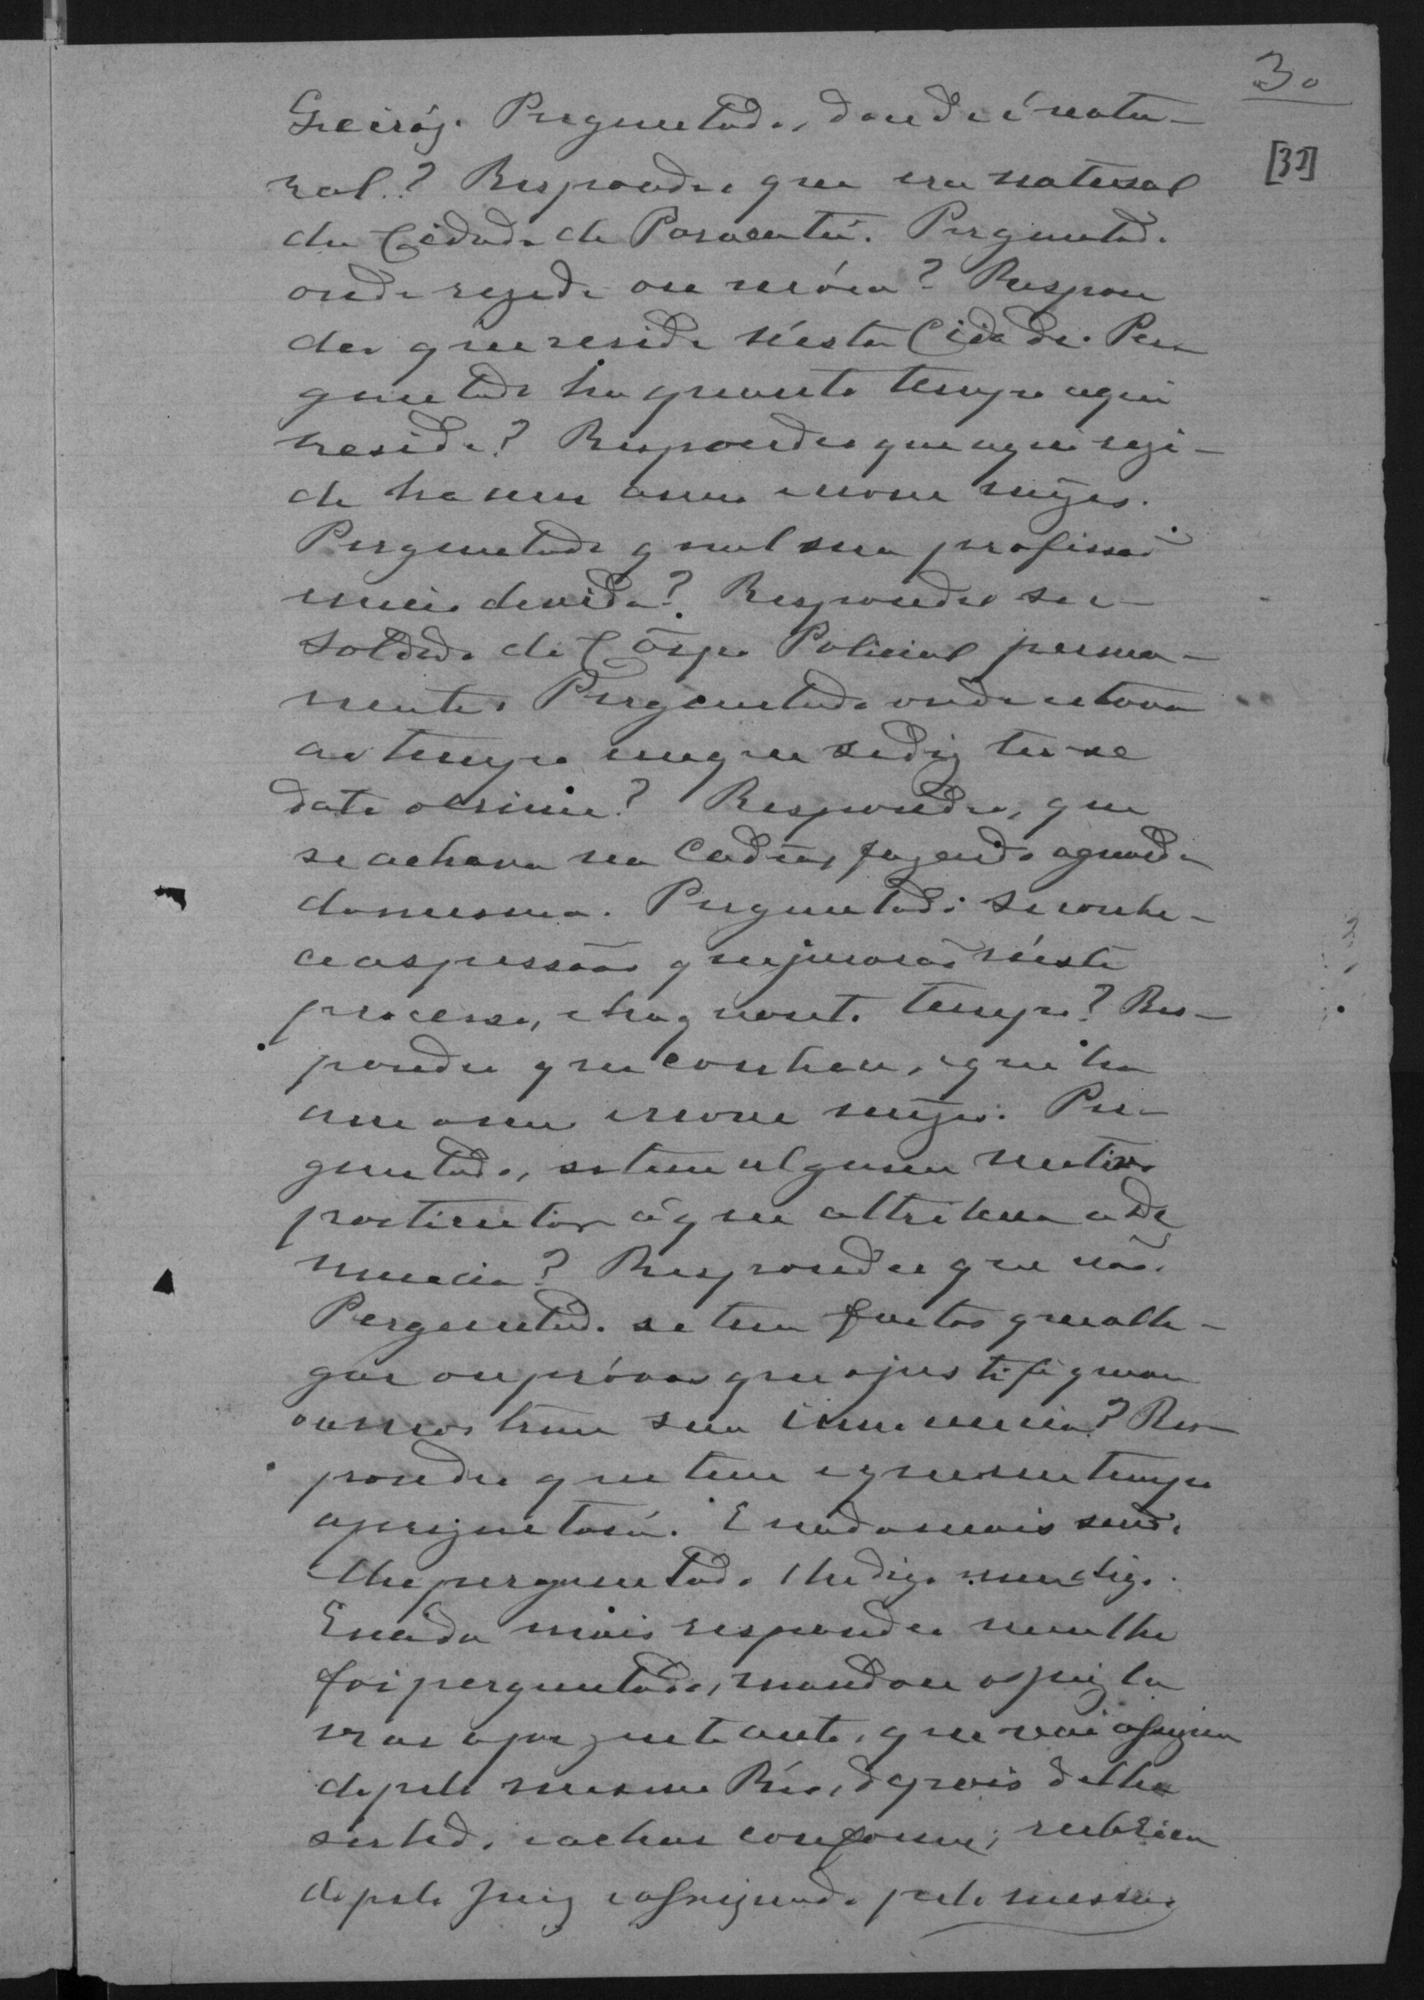 30
[32]
Queiróz. Perguntado, donde é natu-
ral? Respondeu que era natural
da Cidade de Paracatú. Perguntado
onde rezede ou móra? Respon
deo que reside n'ésta Cidade. Per
guntado ha quanto tempo aqui
reside? Respondeo que aqui rezi-
de ha um anno e nove mezes.
Perguntado qual sua profissaõ
meio de vida? Respondeo ser
Soldado do Côrpo Policial perma-
nente. Perguntado onde estava
ao tempo em que se diz ter-se
dato o crime? Respondeo, que
se achava na Cadêa, fazendo aguarda
da mesma. Perguntado se conhe-
ce as pessoas que juraraõ n'éste
processo, e ha quanto tempo? Res-
pondeo que conhece, e que ha
um anno e nove mezes. Per-
guntado, se tem algum motivo
particular á que attribua a de
nuncia? Respondeo que não.
Perguntado se tem factos que alle-
gar ou próvas que o justifiquem
ou mostrem sua innocencia? Res-
pondeo que tem e que em seu tempo
aprezentará. E nada mais sendo
lhe perguntado, lhe digo nem digo.
E nada mais respondeo nem lhe
foi perguntado, mandou o Juiz la
vrar o prezente auto, que vai assigna
do pelo mesmo Réo, depois de lhe
ser lido, e achar conforme; rubrica
do pelo Juiz e assignado pelo mesmo